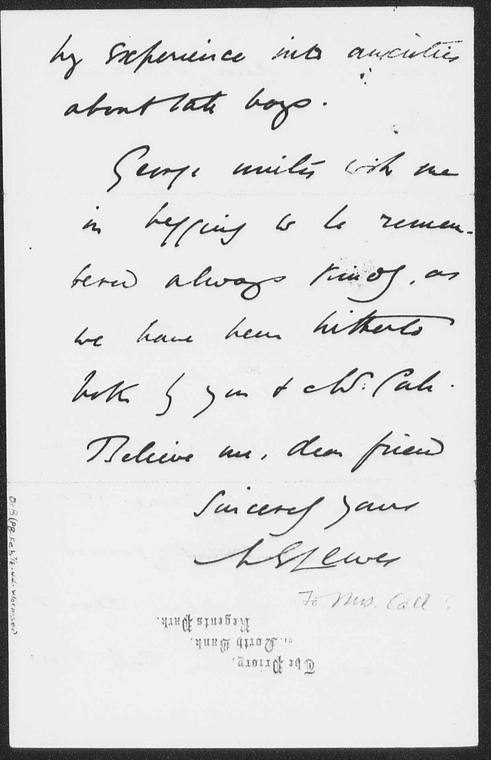 by experience into anxieties
about late boys.
George unites with me
in begging to be remem-
bered always kindly, as
we have been hitherto
both by you & Mr. Call.
Believe me, dear friend
Sincerely yours
M E Lewes
To Mrs. Call?
The Priory,
North Bank,
Regents Park.